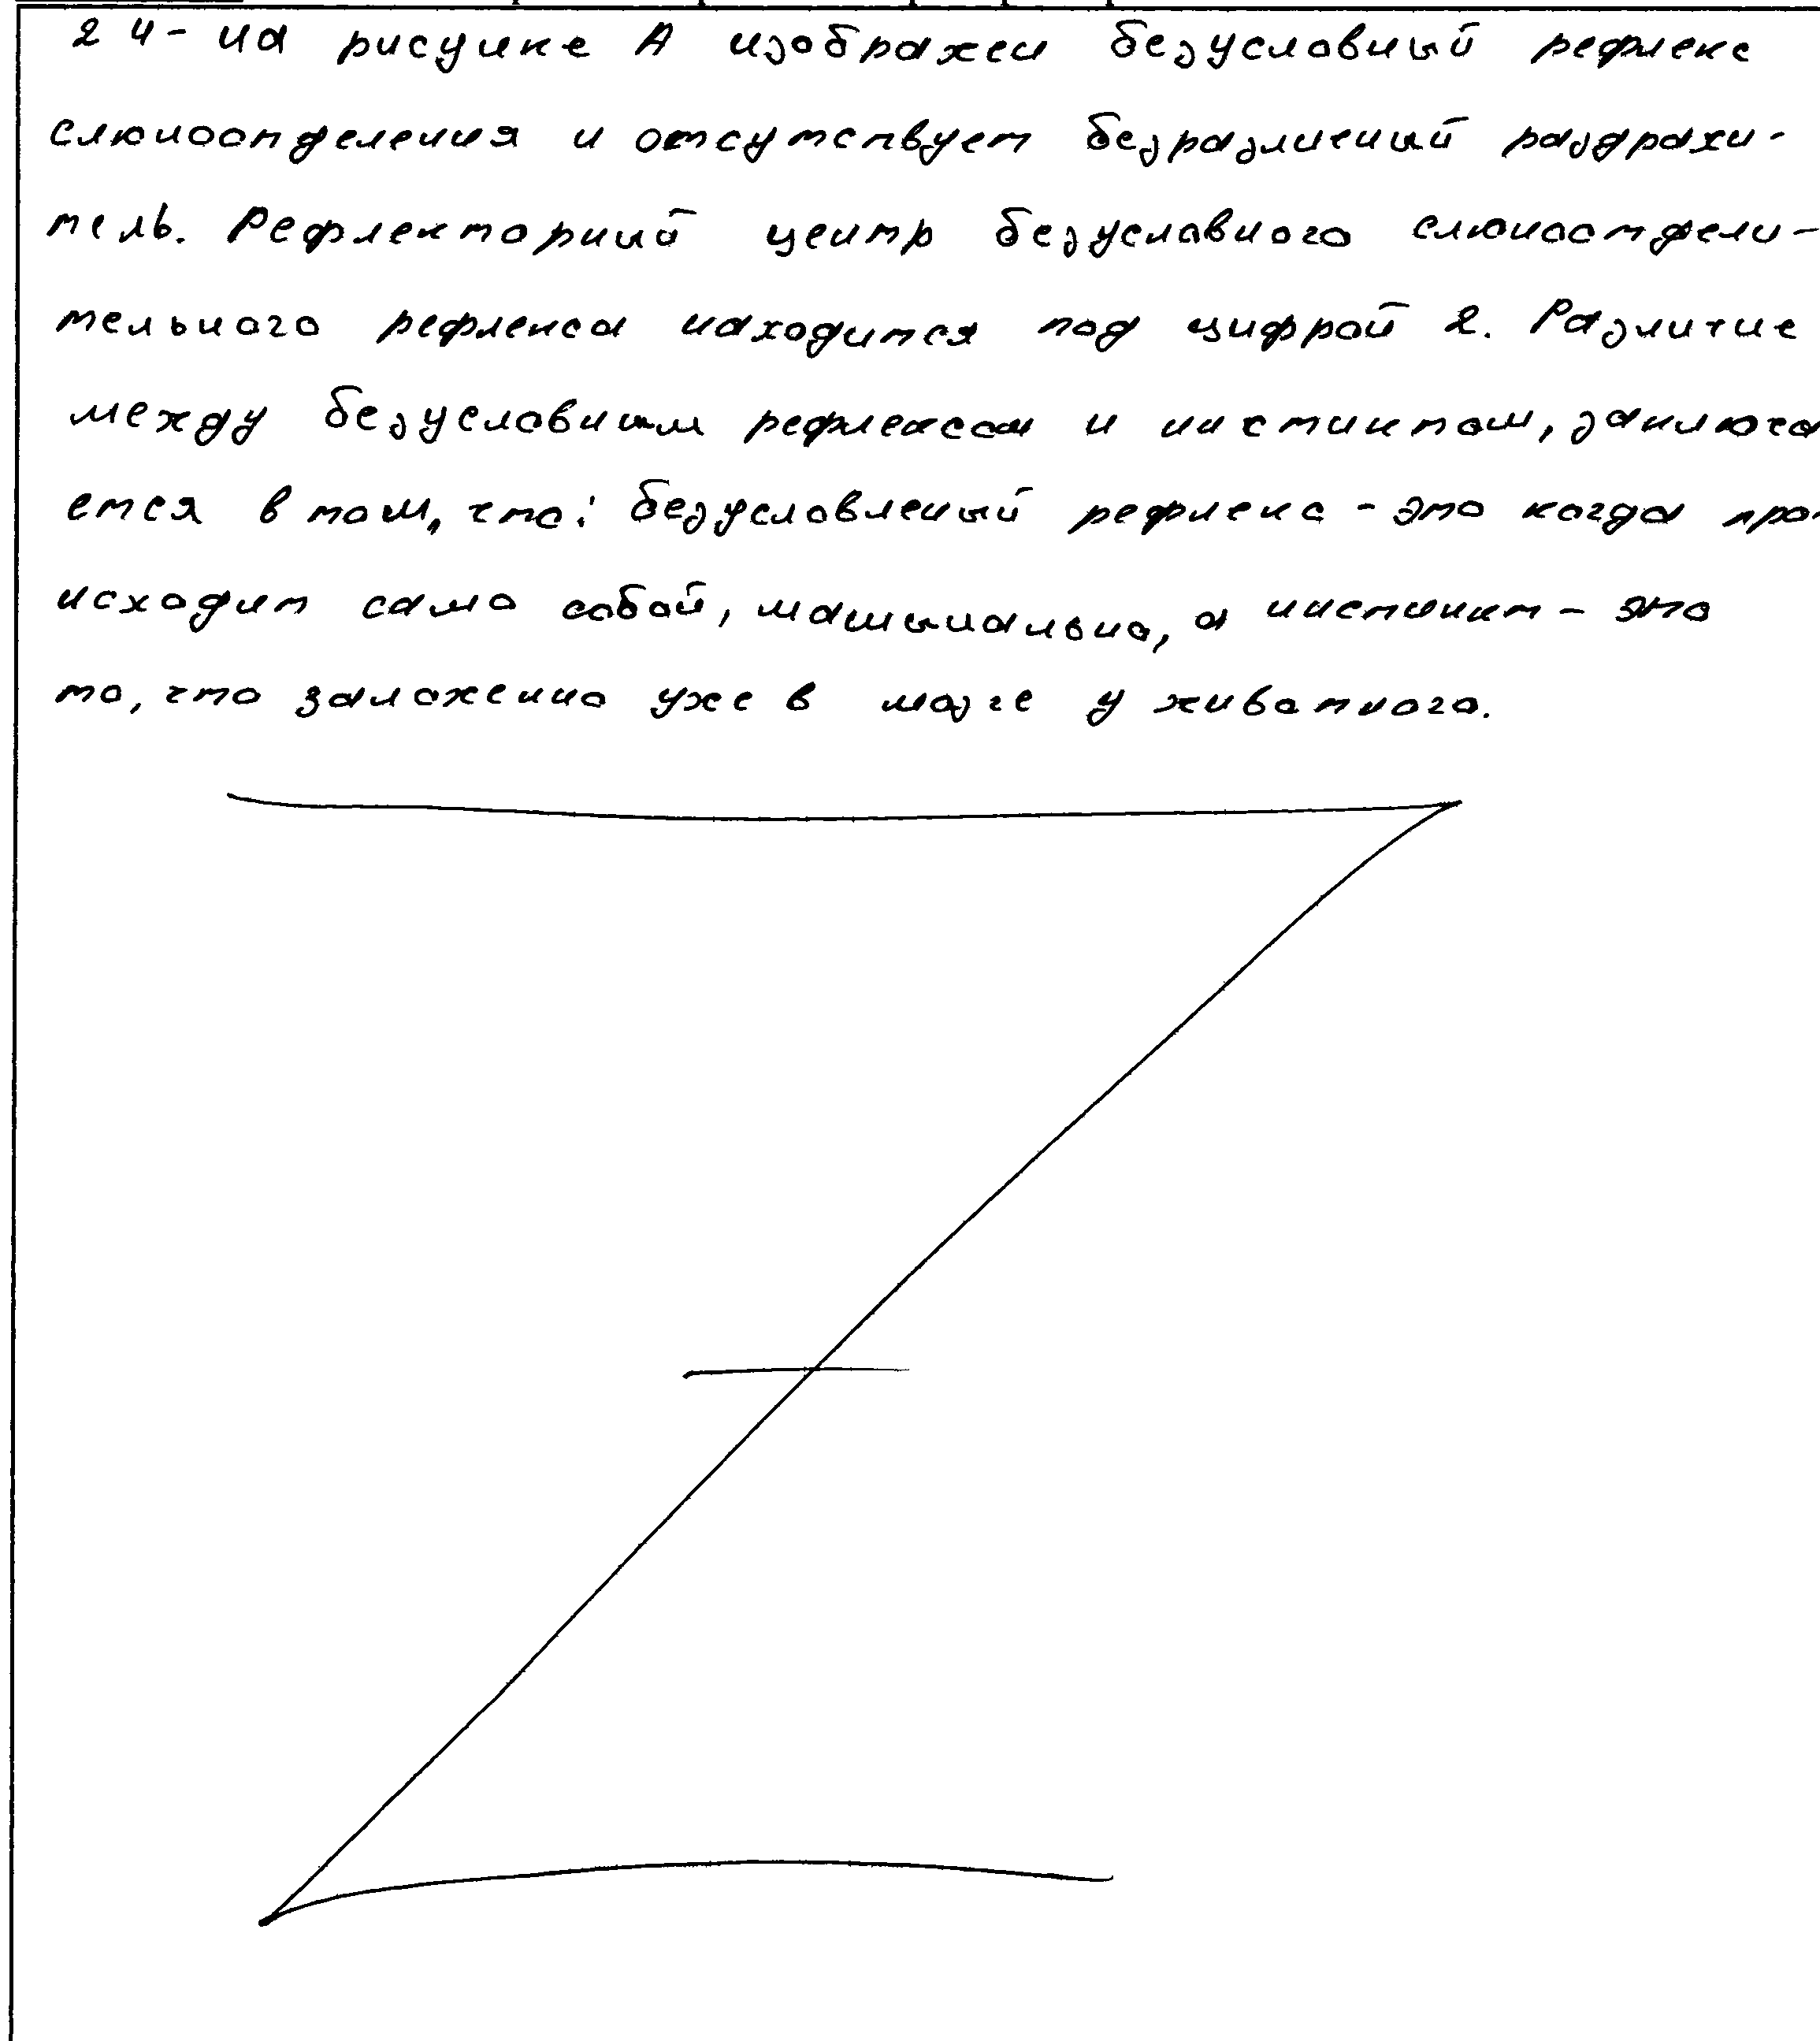 24- на рисунке А изображен безусловный рефлекс
слюноотделения и отсутствует безразличный раздражи-
тель. Рефлекторный центр безуславного слюноотдели-
тельного рефлекса находится под цифрой 2. Различие
между безусловным рефлексом и инстинктом, заключа
ется в том, что: безусловленый рефлекс - это когда про-
исходит само собой, машынально, а инстинкт - это
то, что заложенно уже в мозге у животного.